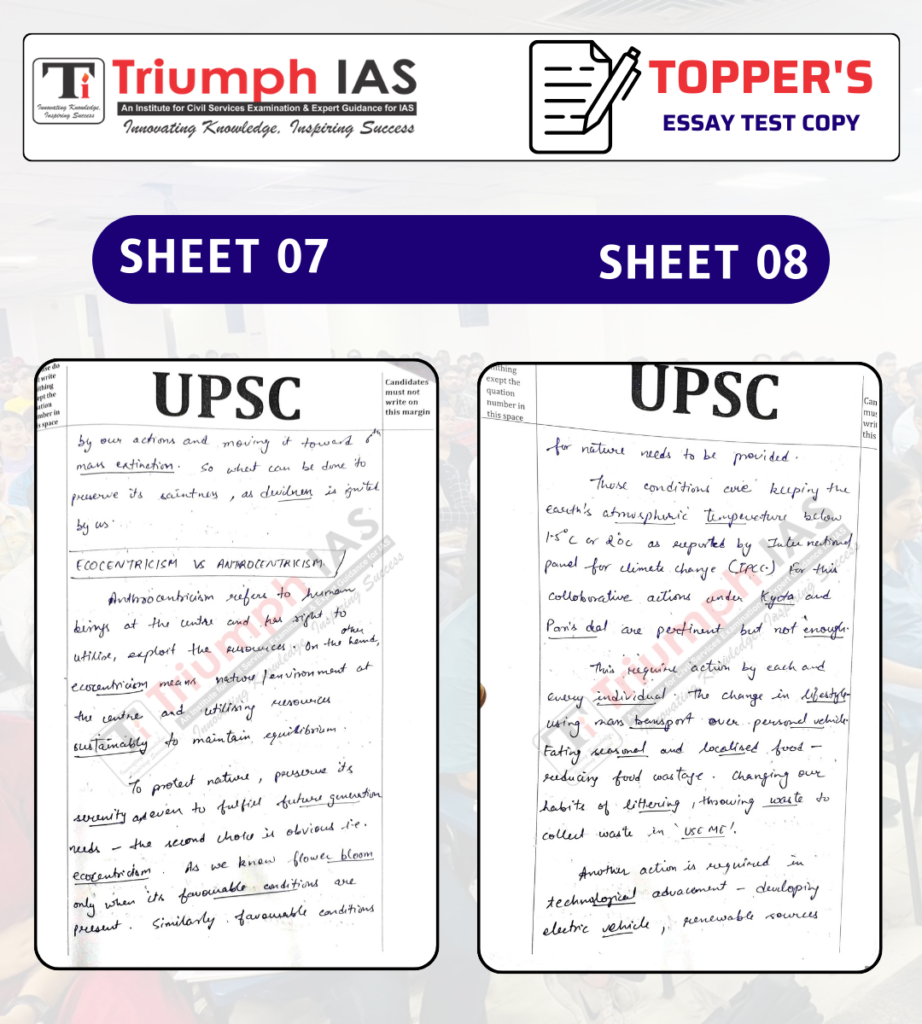 Ti
Innovating Knowledge,
Inspiring Success
Triumph IAS
An Institute for Civil Services Examination & Expert Guidance for IAS
Innovating Knowledge, Inspiring Success
TOPPER'S
ESSAY TEST COPY
SHEET 07
SHEET 08
UPSC
Candidates
must not
write on
this margin
by our actions and moving it toward 6th
mass extinction. So what can be done to
preserve its saintness, as devilness is ignited
by us.
ECOCENTRICISM VS ANTHROCENTRICISM
Anthrocentricism refers to human
beings at the centre and has right to
utilise, exploit the resources. On the other hand,
ecocentricism means nature/environment at
the centre and utilising resources
sustainably to maintain equilibrium.
To protect nature, preserve its
serenity and even to fulfill future generation
needs – the second choice is obvious i.e.
ecocentricism. As we know flower bloom
only when its favourable conditions are
present. Similarly favourable conditions
UPSC
nthing
exept the
quation
number in
this space
for nature needs to be provided.
Those conditions are keeping the
earth's atmospheric temperature below
1.5°C or 2°C as reported by International
panel for climate change (IPCC.) For this
collaborative actions under Kyoto and
Paris deal are pertinent but not enough.
This require action by each and
every individual. The change in lifestyle
using mass transport over personal vehicle.
Eating seasonal and localised food –
reducing food wastage. Changing our
habits of littering, throwing waste to
collect waste in 'USE ME'.
Another action is required in
technological advacement – developing
electric vehicle, renewable sources